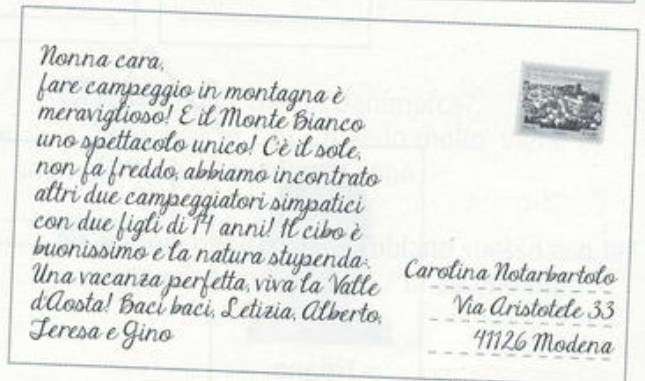 Nonna cara,
fare campeggio in montagna è
meraviglioso! E il Monte Bianco
uno spettacolo unico! C'è il sole,
non fa freddo, abbiamo incontrato
altri due campeggiatori simpatici
con due figli di 14 anni! Il cibo è
buonissimo e la natura stupenda.
Una vacanza perfetta, viva la Valle
d'Aosta! Baci baci, Letizia, Alberto,
Teresa e Gino
Carolina Notarbartolo
Via Aristotele 33
41126 Modena